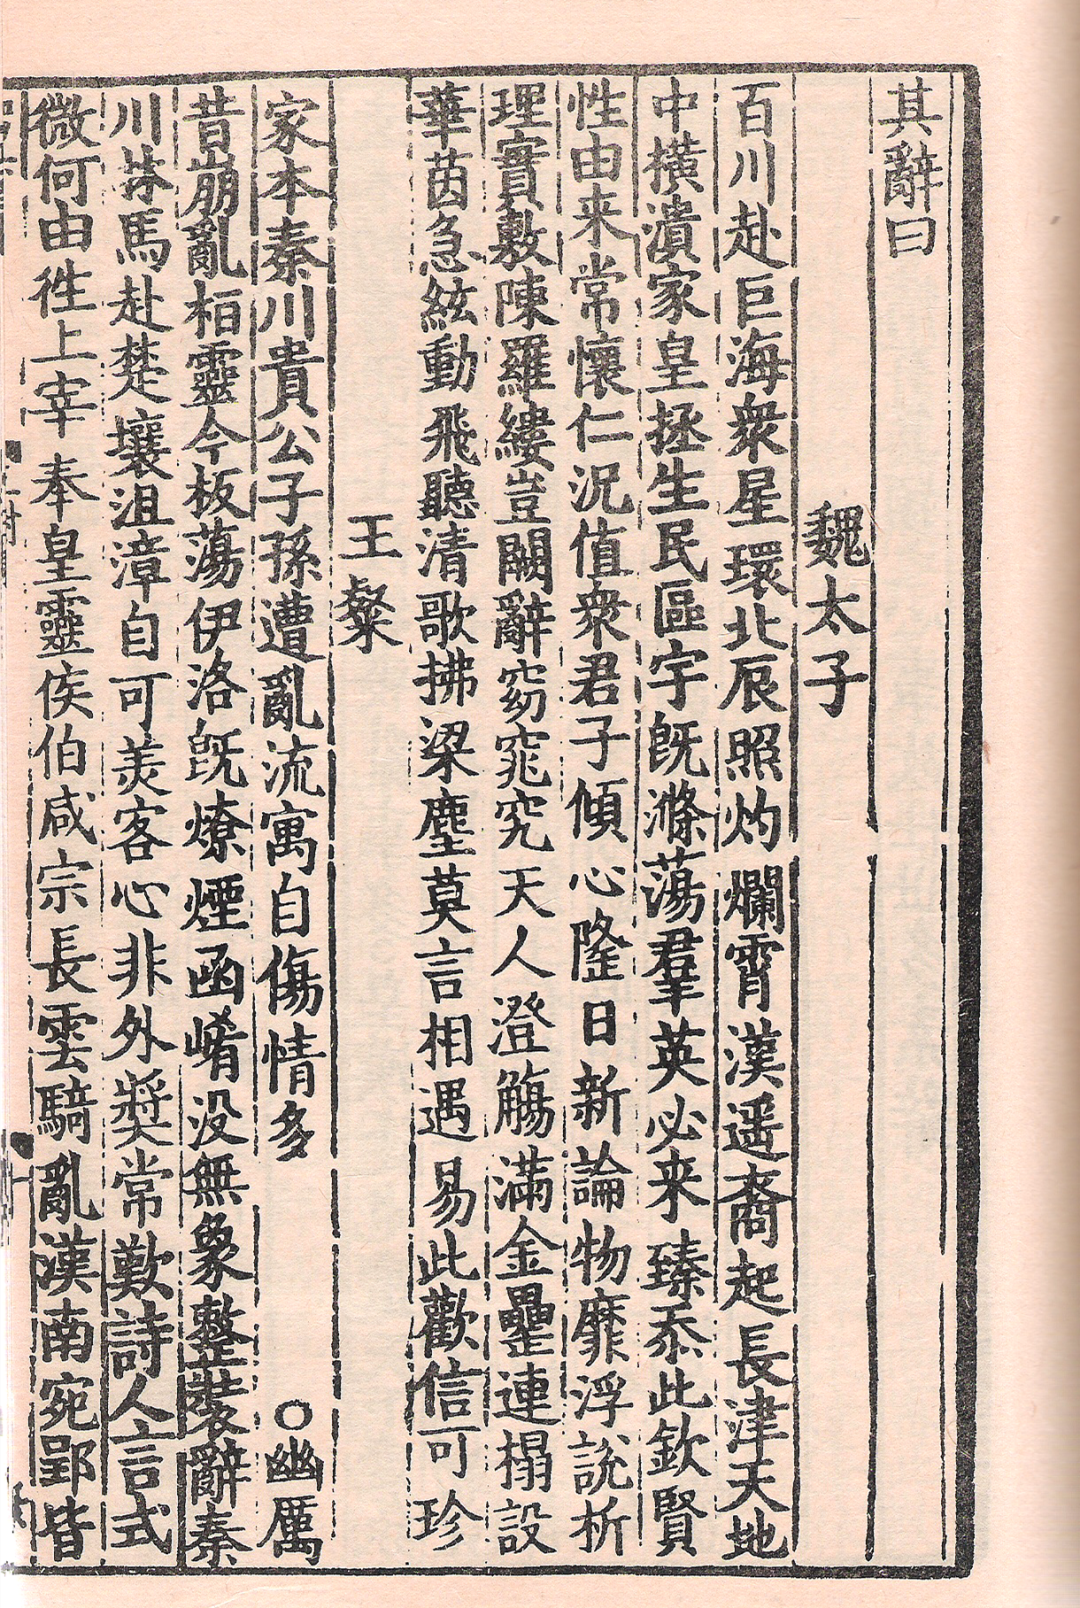 其辭曰
魏太子
百川赴巨海衆星環北辰照灼爛霄漢遥裔起長津天地
中横潰家皇拯生民區宇既滌蕩羣英必来臻忝此欽賢
性由来常懷仁況值衆君子傾心隆日新論物靡浮說析
理實敷陳羅縷豈闕辭窈窕究天人澄觴滿金罍連榻設
華茵急絃動飛聽清歌拂梁塵莫言相遇易此歡信可珍
王粲
家本秦川貴公子孫遭亂流寓自傷情多
○幽厲
昔崩亂桓靈今板蕩伊洛既燎煙函崤没無象整裝辭秦
川秣馬赴楚壤沮漳自可羡客心非外奬常歎詩人言式
微何由徃上宰奉皇靈侯伯咸宗長雲騎亂漢南宛郢皆